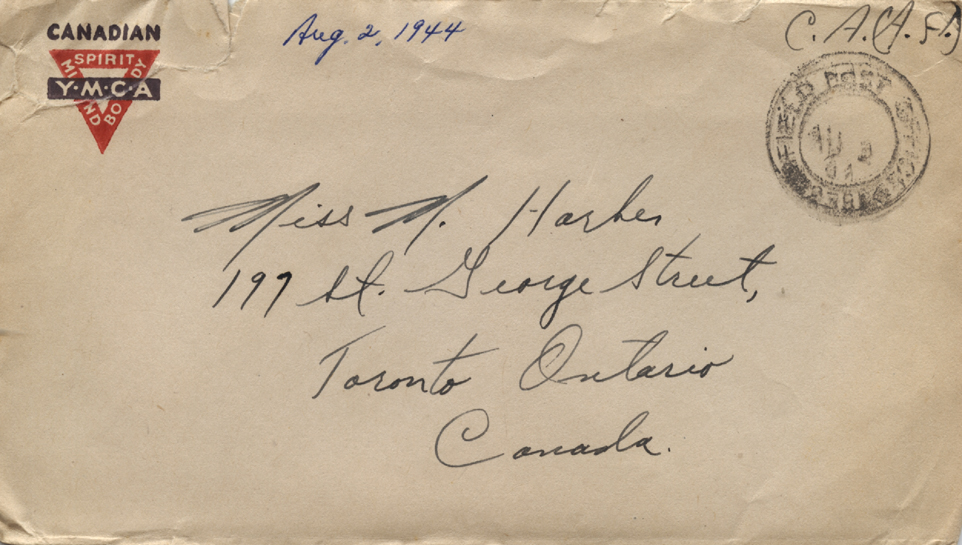 CANADIAN
SPIRIT
MIND
BODY
Y·M·C·A
Aug. 2, 1944
C.A.(A.F.)
FIELD POST OFFICE
AU 3
Miss M. Harber
197 St. George Street,
Toronto Ontario
Canada.